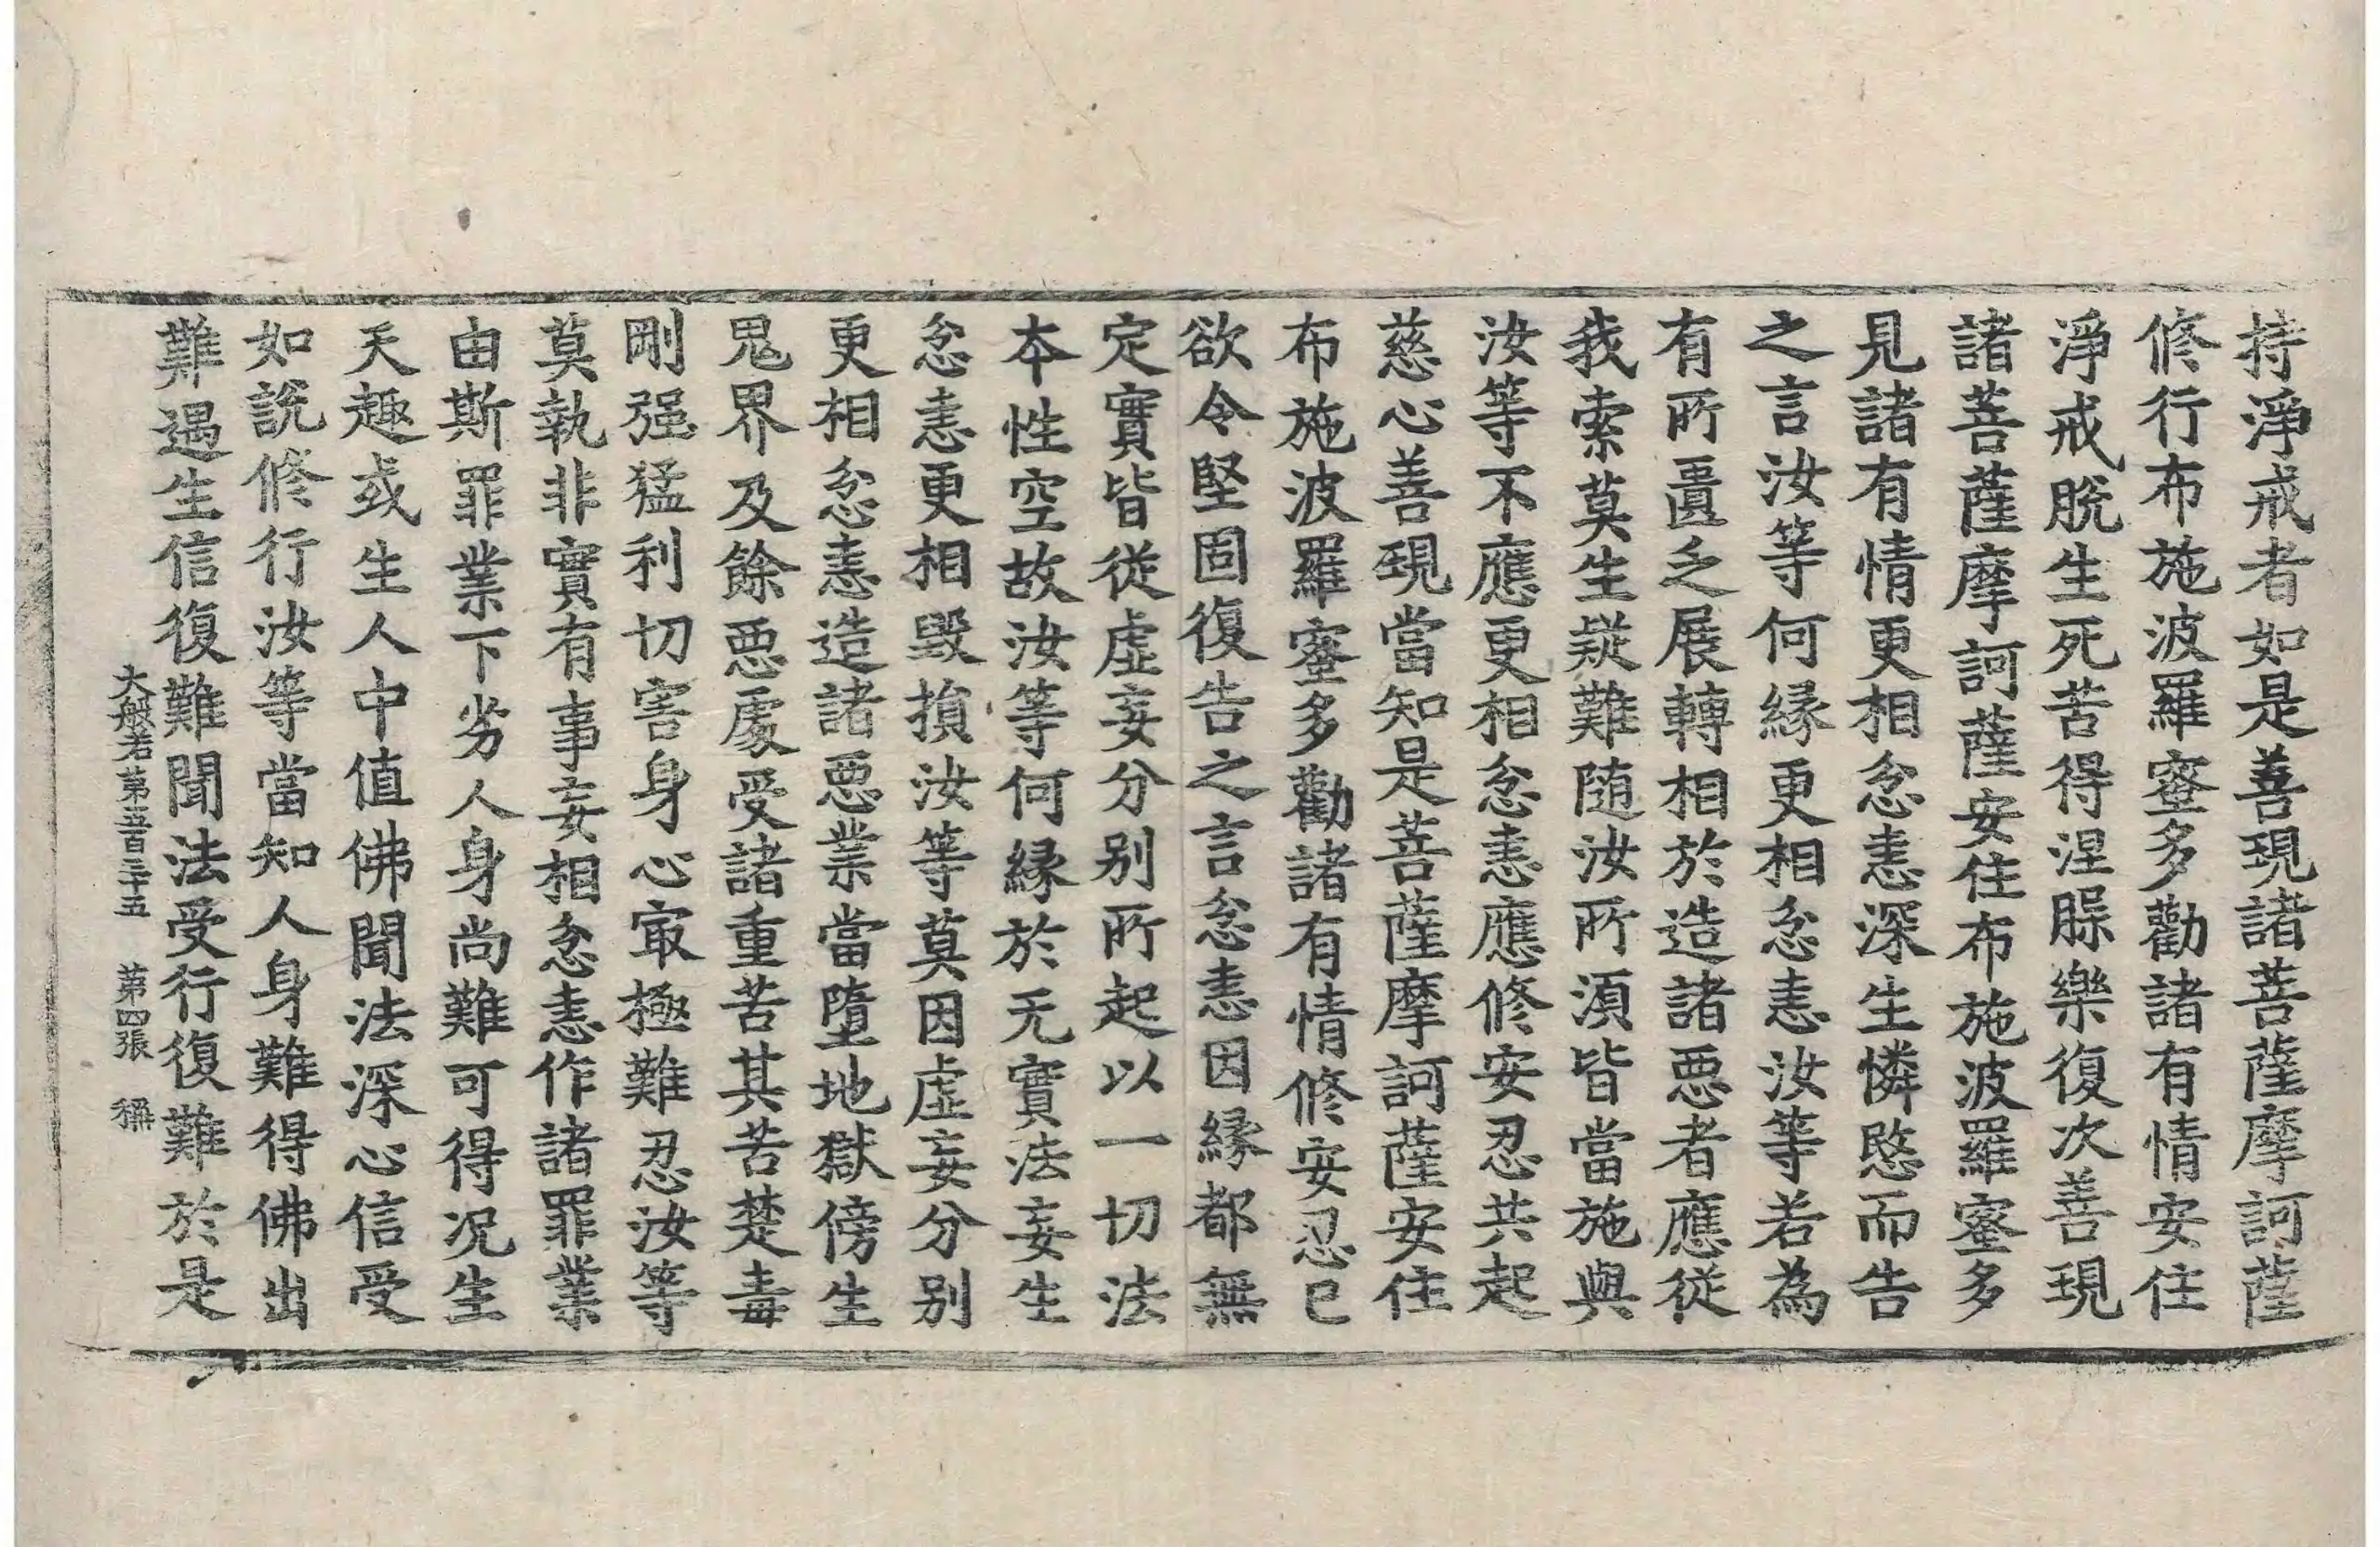 持淨戒者如是善現諸菩薩摩訶薩
修行布施波羅蜜多勸諸有情安住
淨戒脫生死苦得涅槃樂復次善現
諸菩薩摩訶薩安住布施波羅蜜多
見諸有情更相忿恚深生憐愍而告
之言汝等何緣更相忿恚汝等若為
有所匱乏展轉相於造諸惡者應從
我索莫生疑難隨汝所須皆當施與
汝等不應更相忿恚應修安忍共起
慈心善現當知是菩薩摩訶薩安住
布施波羅蜜多勸諸有情修安忍已
欲令堅固復告之言忿恚因緣都無
定實皆從虛妄分別所起以一切法
本性空故汝等何緣於无實法妄生
忿恚更相毀損汝等莫因虛妄分別
更相忿恚造諸惡業當墮地獄傍生
鬼界及餘惡處受諸重苦其苦楚毒
剛强猛利切害身心㝡極難忍汝等
莫執非實有事妄相忿恚作諸罪業
由斯罪業下劣人身尚難可得况生
天趣或生人中值佛聞法深心信受
如說修行汝等當知人身難得佛出
難遇生信復難聞法受行復難於是
大般若第五百三十五 第四張 稱